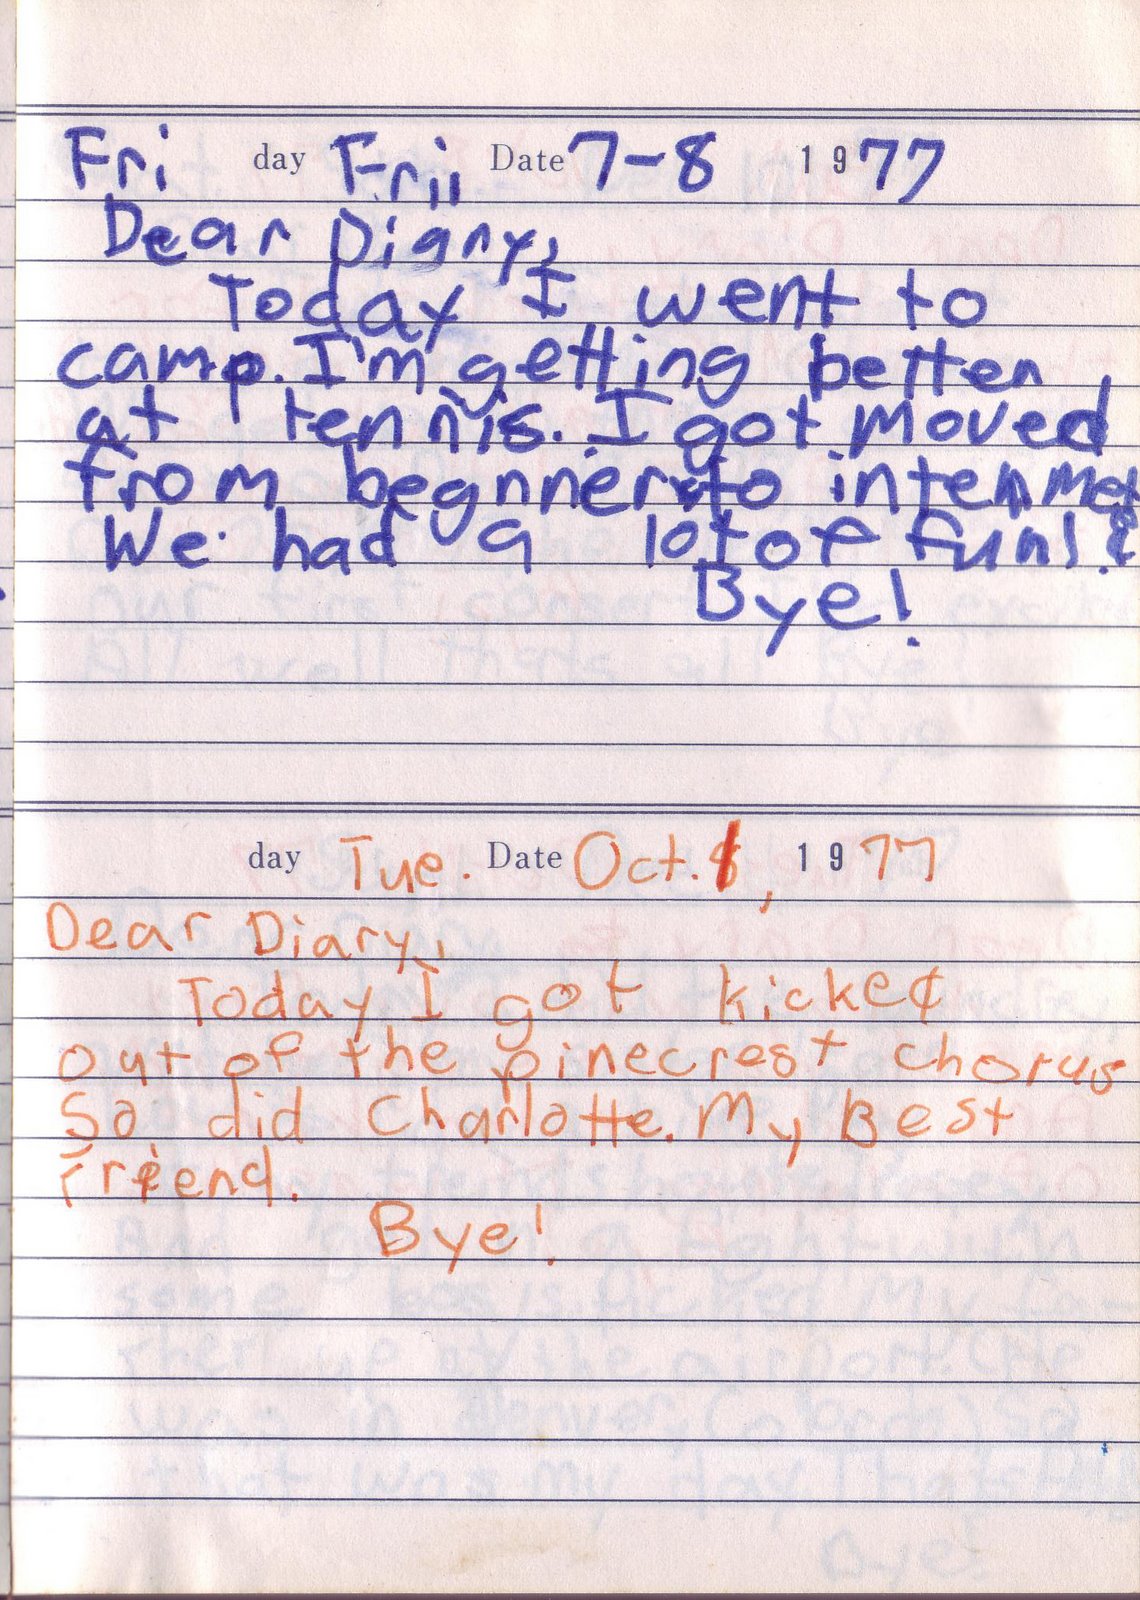 Fri day Frii Date 7-8 1977
Dear Diary,
Today I went to
camp. I'm getting better
at tennis. I got moved
from begnner to intermed
We had a lot of fun!
Bye!
day Tue. Date Oct. , 1977
Dear Diary,
Today I got kicked
out of the pinecrest chorus
So did Charlotte. My Best
Friend.
Bye!